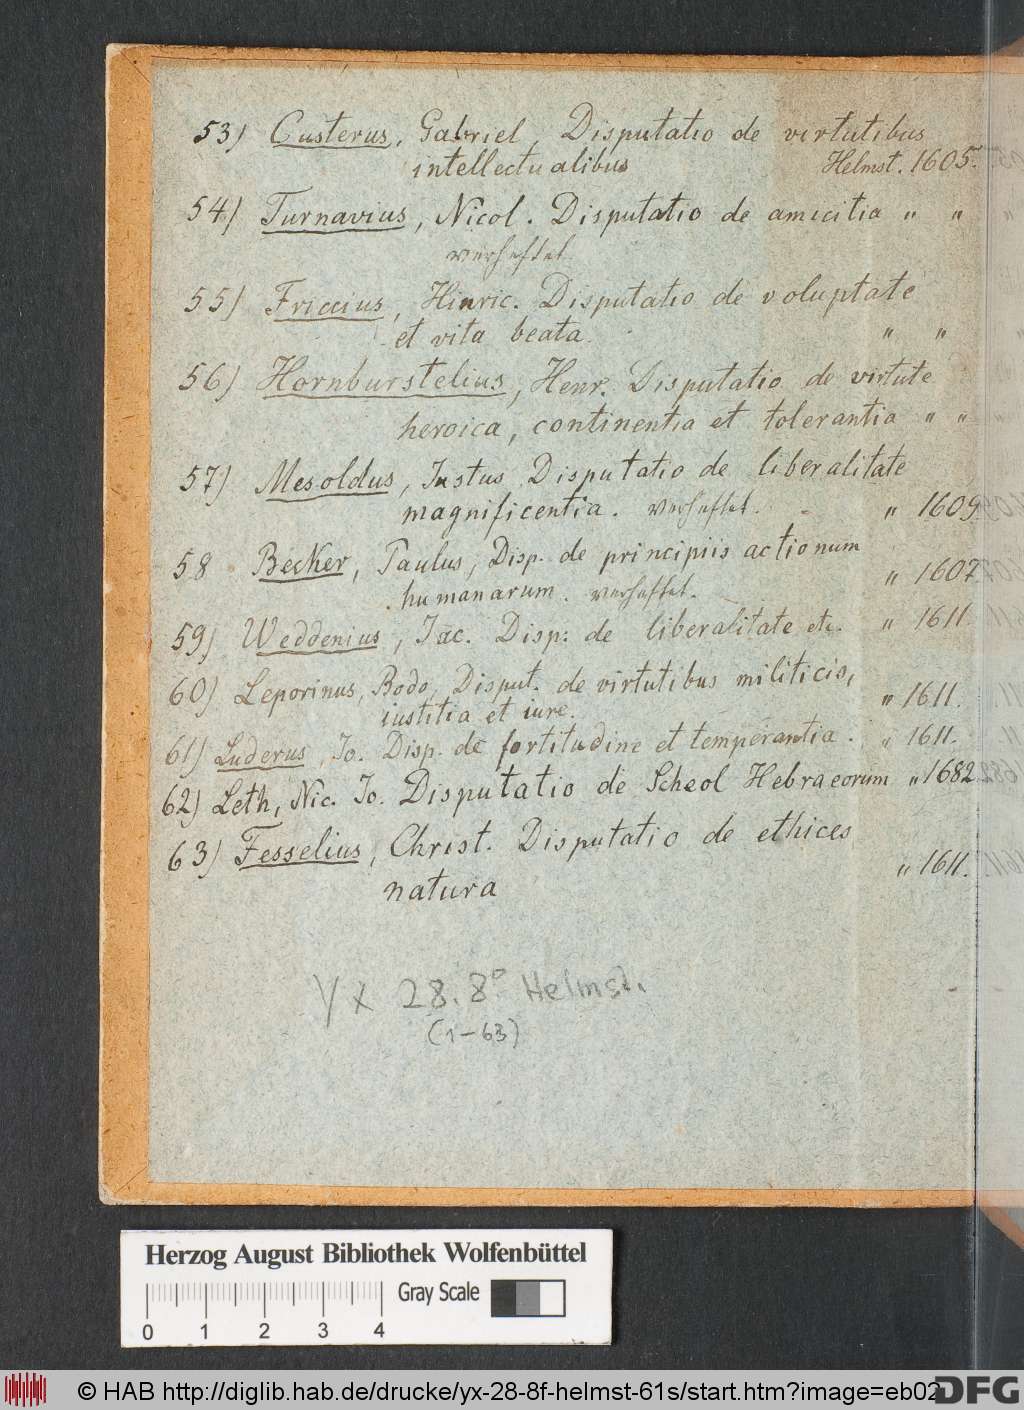 53) Custerus, Gabriel, Disputatio de virtutibus
intellectualibus Helmst. 1605.
54) Turnavius, Nicol. Disputatio de amicitia " "
verheftet.
55) Friccius, Hinric. Disputatio de voluptate
et vita beata. " "
56) Hornburstelius, Henr. Disputatio de virtute
heroica, continentia et tolerantia " "
57) Mesoldus, Justus, Disputatio de liberalitate
magnificentia. verheftet. " 1609.
58 Becker, Paulus, Disp. de principiis actionum
humanarum. verheftet. " 1607.
59) Weddenius, Jac. Disp: de liberalitate etc. " 1611.
60) Leporinus, Bodo, Disput. de virtutibus militicis,
iustitia et iure. " 1611.
61) Luderus, Jo. Disp. de fortitudine et temperantia. " 1611.
62) Leth, Nic. Jo. Disputatio de Scheol Hebraeorum " 1682.
63) Fesselius, Christ. Disputatio de ethices
natura " 1611.
Yx 28. 8° Helmst.
(1-63)
Herzog August Bibliothek Wolfenbüttel
Gray Scale
0 1 2 3 4
© HAB http://diglib.hab.de/drucke/yx-28-8f-helmst-61s/start.htm?image=eb02
DFG